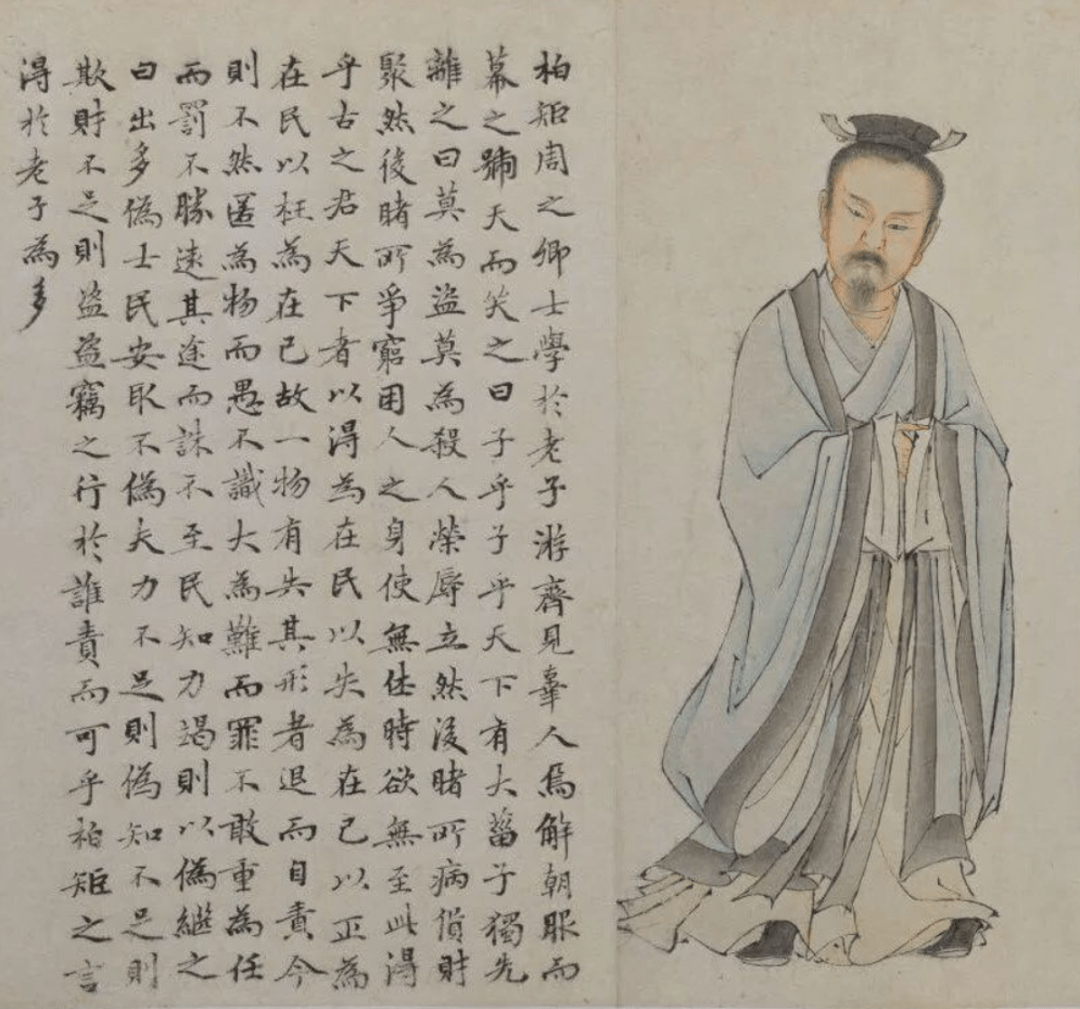 柏矩周之卿士學於老子游齊見辜人焉解朝服而
幕之號天而哭之曰子乎子乎天下有大菑子獨先
離之曰莫為盜莫為殺人榮辱立然後睹所病貨財
聚然後睹所爭窮困人之身使無休時欲無至此得
乎古之君天下者以得為在民以失為在己以正為
在民以枉為在己故一物有失其形者退而自責今
則不然匿為物而愚不識大為難而罪不敢重為任
而罰不勝遠其途而誅不至民知力竭則以偽繼之
曰出多偽士民安取不偽夫力不足則偽知不足則
欺財不足則盜盜竊之行於誰責而可乎柏矩之言
得於老子為多